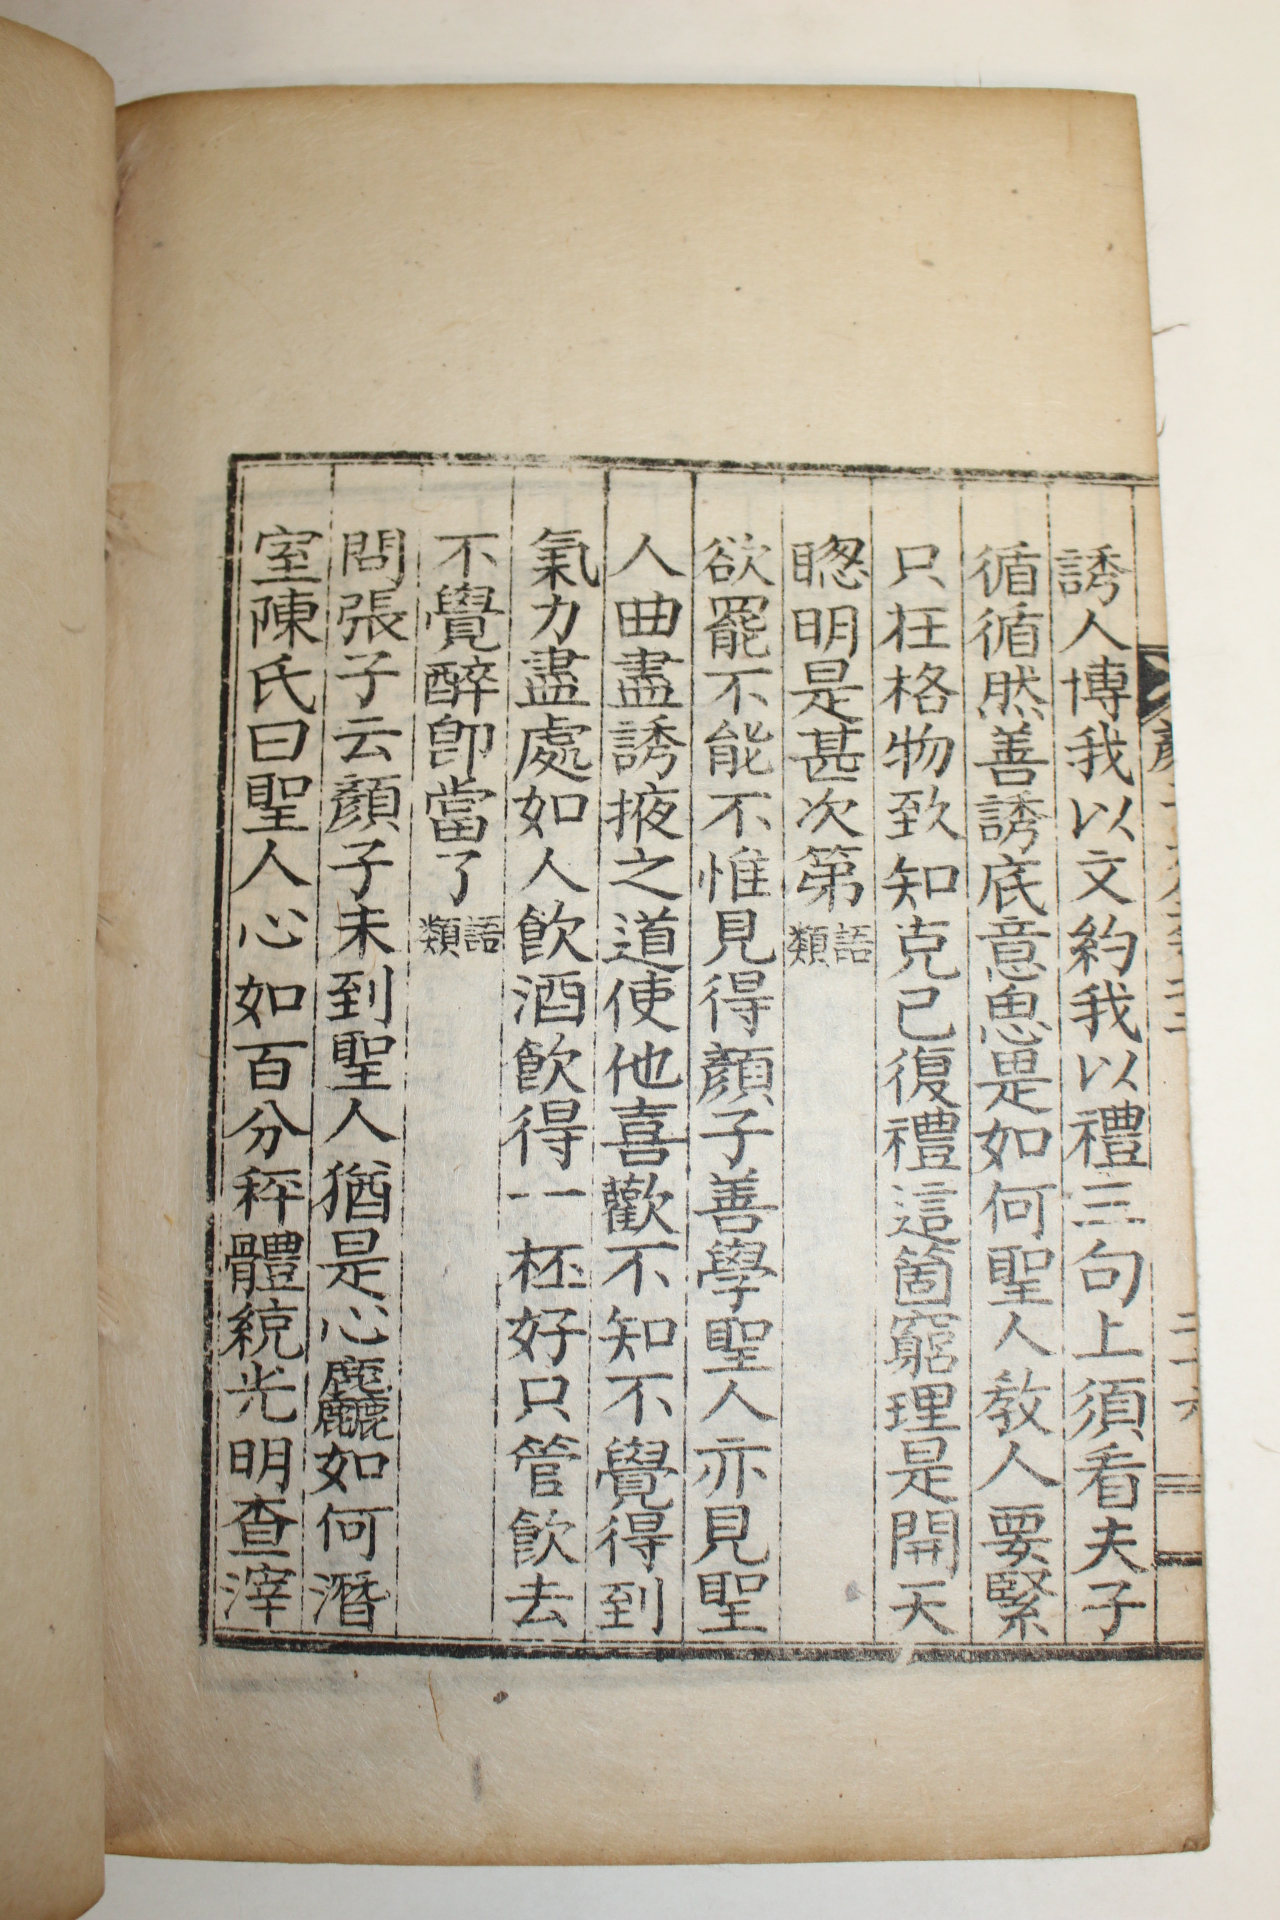 誘人博我以文約我以禮三句上須看夫子
循循然善誘底意思畏是如何聖人教人要緊
只在格物致知克己復禮這箇窮理是開天
聦明是甚次第語類
欲罷不能不惟見得顔子善學聖人亦見聖
人曲盡誘掖之道使他喜歡不知不覺得到
氣力盡處如人飮酒飮得一杯好只管飮去
不覺醉郎當了語類
問張子云顔子未到聖人猶是心麤如何潛
室陳氏曰聖人心如百分秤體統光明查滓